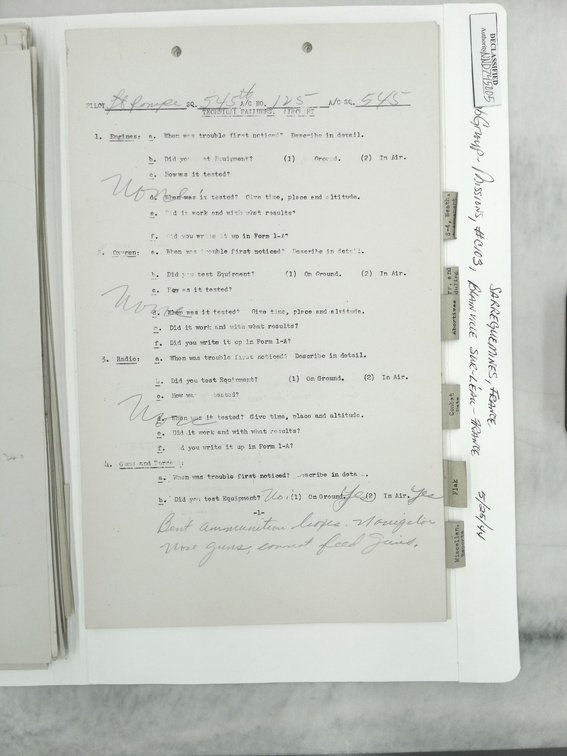 PILOT Lt Pompe SQ. 545th A/C NO. 125 A/C SQ. 545
TECHNICAL FAILURES,
1. Engines: a. When was trouble first noticed? Describe in detail.
b. Did you Equipment? (1) Ground. (2) In Air.
c. How was it tested?
None
d. When was it tested? Give time, place and altitude.
e. Did it work and with what results?
f. Did you write it up in Form 1-A?
2. Oxygen: a. When was trouble first noticed? Describe in detail.
b. Did you test Equipment? (1) On Ground. (2) In Air.
c. How was it tested?
None
d. When was it tested? Give time, place and altitude.
e. Did it work and with what results?
f. Did you write it up in Form 1-A?
3. Radio: a. When was trouble first noticed? Describe in detail.
b. Did you test Equipment? (1) On Ground. (2) In Air.
c. How was tested?
None
d. When was it tested? Give time, place and altitude.
e. Did it work and with what results?
f. Did you write it up in Form 1-A?
4. Guns and Turrets:
a. When was trouble first noticed? Describe in detail.
b. Did you test Equipment? No. (1) On Ground. Yes (2) In Air. Yes
-1-
Bent ammunition boxes. Navigator
nose guns, cannot feed guns.
DECLASSIFIED
Authority NND745005
Group - Missions, #C103, Blainville Sur-L'eau - France
Sarreguemines, France
5/25/44
Abortives
Combat
Flak